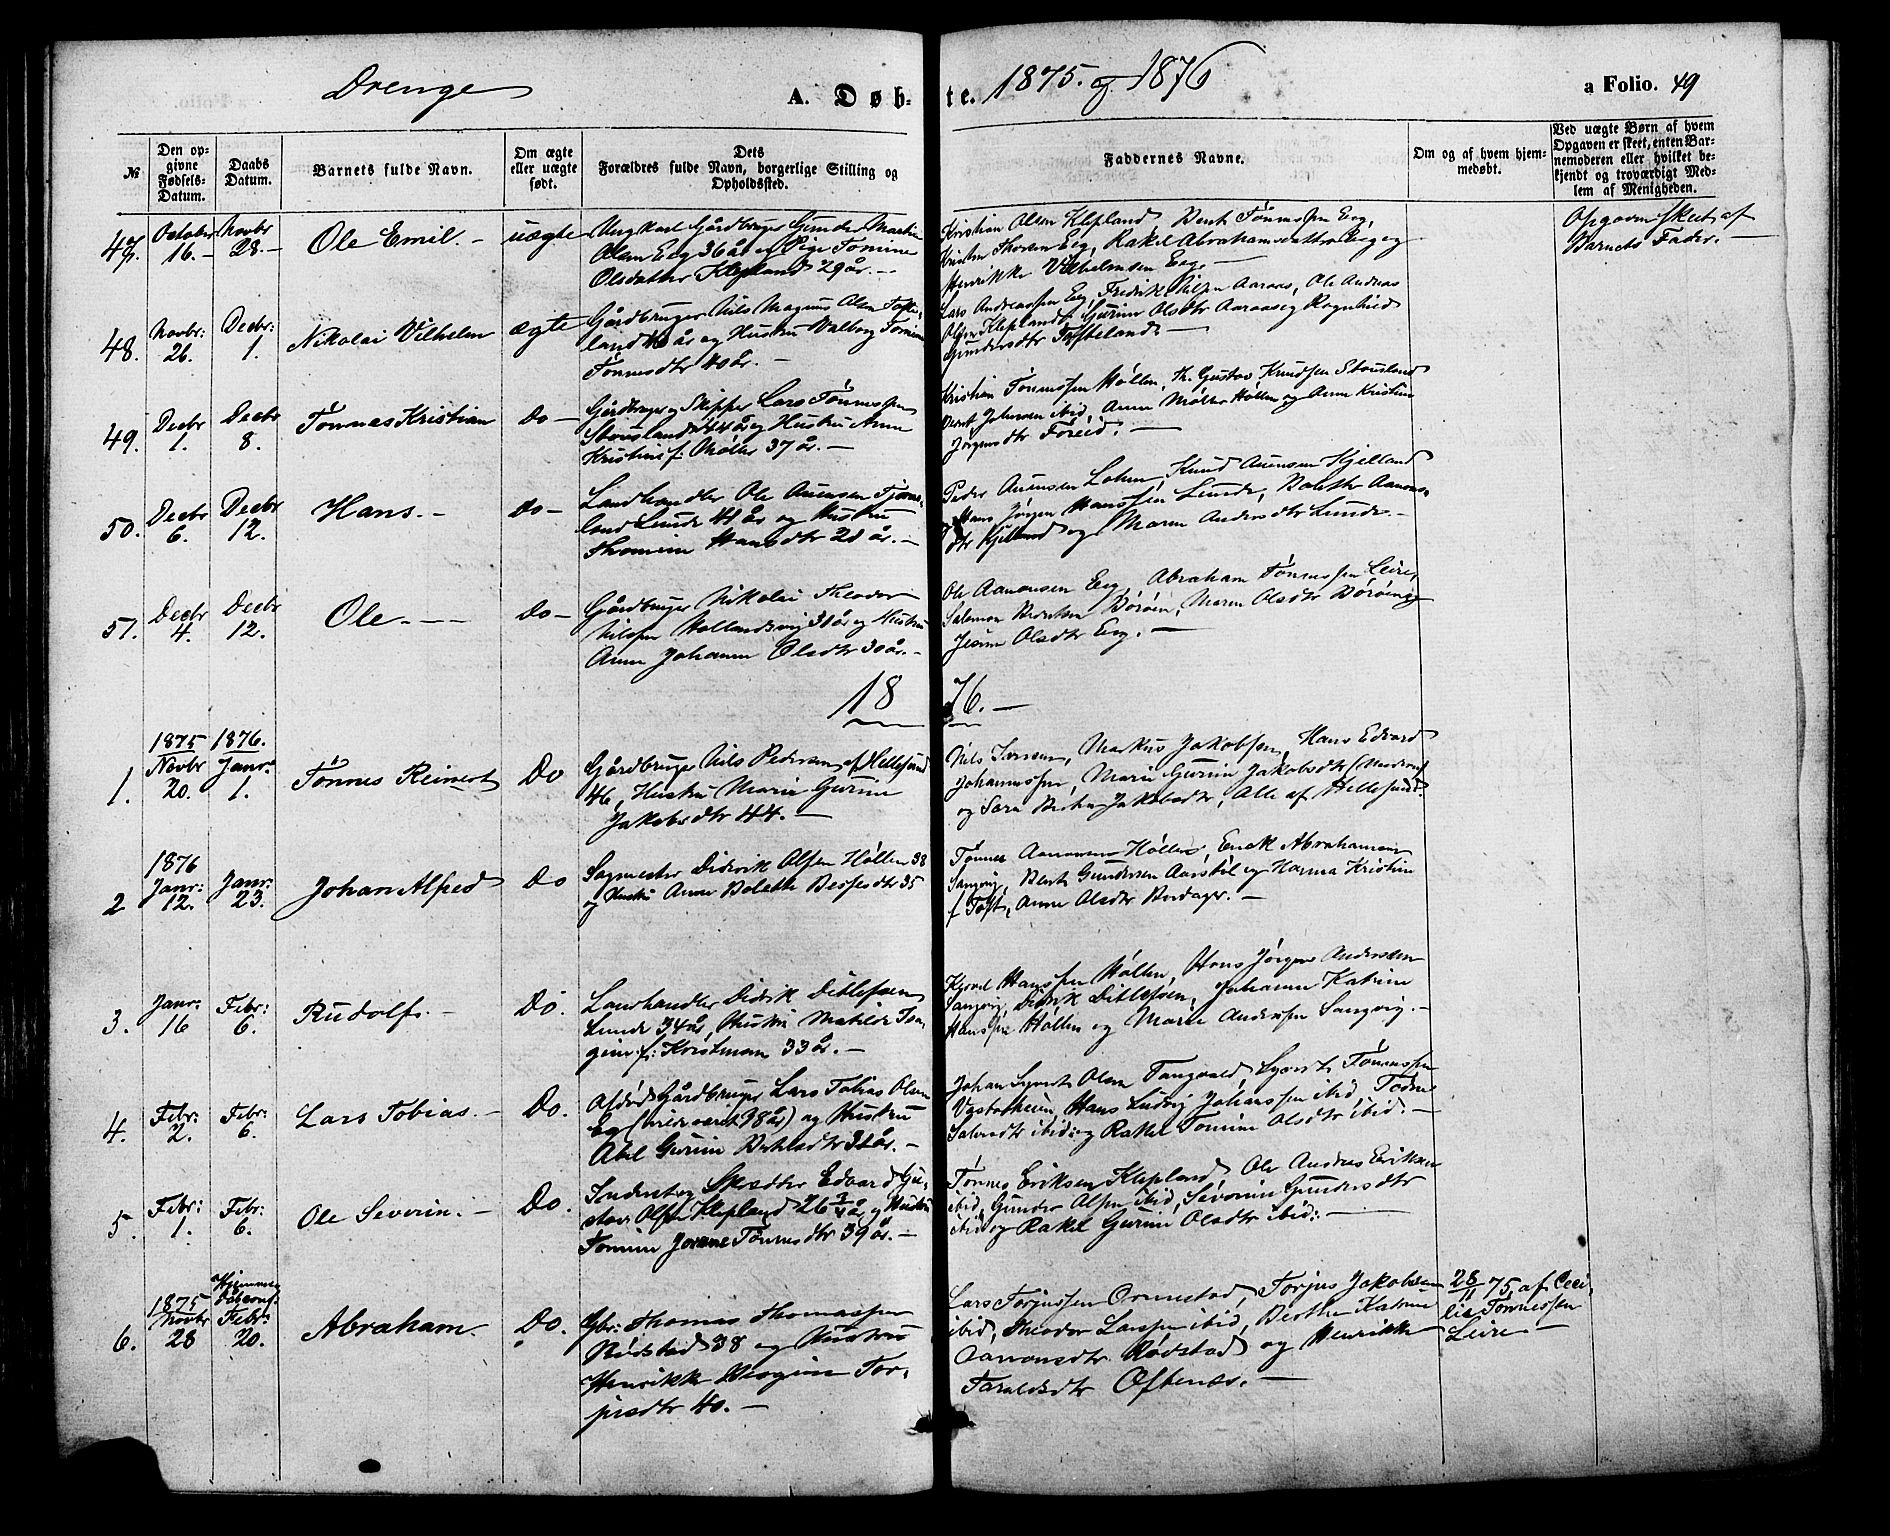 Drenge
A. Døb-te. 1875. og 1876
a Folio. 49
№
Den op-
givne
Fødsels-
Datum.
Daabs
Datum.
Barnets fulde Navn.
Om ægte
eller uægte
født.
Dets
Forældres fulde Navn, borgerlige Stilling og
Opholdssted.
Faddernes Navne.
Om og af hvem hjem-
medøbt.
Ved uægte Børn af hvem
Opgaven er skeet, enten Bar-
nemoderen eller hvilket be-
kjendt og troværdigt Med-
lem af Menigheden.
47.
October
16. -
Novbr
28. -
Ole Emil. -
uægte
Ungkarl Gårdbruger Gunder Martin
Olsen Eeg 36 år og Pige Tomine
Olsdatter Klepland 29 år. -
Kristian Olsen Klepland Bent Tønnessen Eeg,
Kristen Thorsen Eeg, Rakel Abrahamsdatter Eeg og
Henrikke Vilhelmsen Eeg. -
Opgaven skeet af
Barnets Fader. -
48.
Novbr:
26.
Decbr:
1.
Nikolai Vilhelm
ægte
Gårdbruger Nils Magnus Olsen Tofte-
land 46 år og Hustru Valborg Tomine
Tønnesdtr 40 år. -
Lars Andreassen Eeg, Fredrik Nilsen Aaraas, Ole Andreas
Olsen Klepland, Gurine Olsdtr Aaraas og Rognhild
Gundersdtr Tofteland. -
49.
Decbr
1.
Decbr
8.
Tønnes Kristian
Do -
Gårdbruger og Skipper Lars Tønnessen
Stousland 44 år og Hustru Anne
Kristine f: Møller 37 år. -
Kristian Tønnessen Høllen, Th. Gustav Knudsen Stousland
Bernt Johnsen ibid, Anne Møller Høllen og Anne Kristine
Jørgensdtr Føreid. -
50.
Decbr
6.
Decbr
12.
Hans. -
Do -
Landhandler Ole Aanensen Tjomse-
land Lunde 41 år og Hustru
Thomine Hansdtr 28 år. -
Peder Aanensen Lohne, Knud Aanensen Kjelland
Hans Jørgen Hanssen Lunde, Bolette Aanons-
dtr Kjelland og Maren Andersdtr Lunde. -
51.
Decbr
4.
Decbr
12.
Ole. - - -
Do -
Gårdbruger Nikolai Theodor
Nilsen Hollandsvig 31 år og Hustru
Anne Johanne Olsdtr 30 år. -
Ole Aanonsen Eeg, Abraham Tønnessen Leire,
Salomon Berntsen Borøen, Maren Olsdtr Borøen og
Jesine Olsdtr Eeg. -
1876. -
1.
1875
Novbr
20.
1876.
Janr.
1.
Tønnes Reinert
Do
Gårdbruger Nils Pedersen af Hellesund
46, Hustru Marie Gurine
Jakobsdtr 44. -
Nils Larsen, Markus Jakobsen, Hans Edvard
Johannessen, Marie Gurine Jakobsdtr (Moderen)
og Sara Bertha Jakobsdtr, Alle af Hellesund.
2
1876
Janr:
12.
Janr:
23.
Johan Alfred
Do
Sagmester Didrik Olsen Høllen 38
og Hustru Anne Bolette Bessesdtr 35
Tønnes Aanonsen Høllen, Enok Abrahamsen
Sangvig, Bent Gundersen Aarstøl og Hanna Kristine
f Toft, Anne Olsdtr Birdager. -
3.
Janr:
16
Febr:
6.
Rudolf. -
Do.
Landhandler Didrik Ditlefsen
Lunde 34 år, Hustru Matilde Tor-
gine f: Kristman 33 år. -
Hanssen Høllen, Hans Jørgen Andersen
Sangvig, Didrik Ditlefsen, Johanne Katrine
Hanssen Høllen og Marie Andersen Sangvig. -
4.
Febr:
2.
Febr:
6.
Lars Tobias. -
Do.
Afdøde Gårdbruger Lars Tobias Olsen
Eg (vilde været 38 år) og Hustru
Abel Gurine Bertelsdtr 31 år. -
Johan Syvert Olsen Tangvald, Syvert Tønnessen
Vesterheim, Hans Ludvig Johanssen ibid, Todne
Salvesdtr ibid: og Rakel Tomine Olsdtr ibid. -
5.
Febr:
1.
Febr:
6.
Ole Severin. -
Do.
Inderst og Skredder Edvard Gu-
stav Olsen Klepland 26 3/4 år og Hustru
Tomine Jorene Tønnesdtr 39 år. -
Tønnes Eriksen Klepland, Ole Andreas Eriksen
ibid, Gunder Olsen ibid, Severine Gundersdtr
ibid og Rakel Gurine Olsdtr ibid: -
6.
1875
Novbr
28
Hjemme-
døberen
Febr:
20.
Abraham. -
Do.
Gbr: Thomas Thomassen
Rødstad 38 og Hustru
Henrikke Bergine Tor-
jusdtr 40. -
Lars Torjussen Ormestad, Torjus Jakobsen
ibid, Theodor Larssen ibid, Berthe Katrine
Aanonsdtr Rødstad og Henrikke
Taraldsdtr Oftenes. -
28/11 75, af Ceci-
lie Tønnessen
Leire -